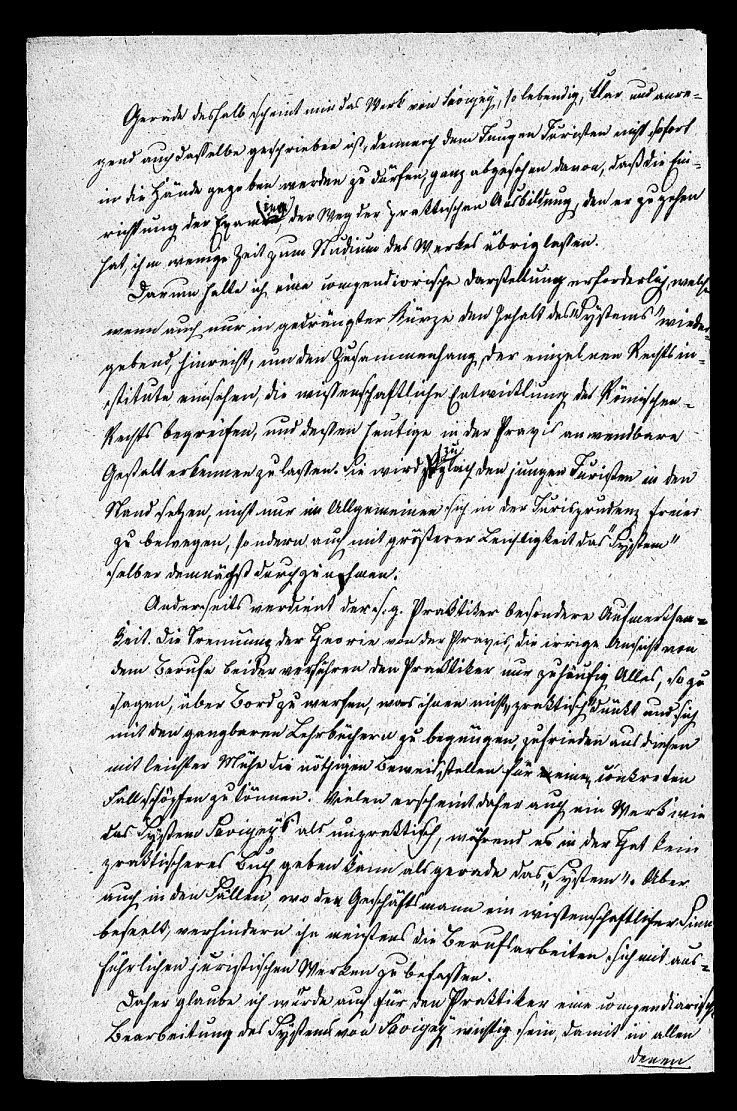 Gerade deshalb scheint mir das Werk von Savigny, so lebendig, klar und anre-
gend auch dasselbe geschrieben ist, dennoch dem Jungen Juristen nicht sofort
in die Hände gegeben werden zu dürfen, ganz abgesehen davon, daß die Ein-
richtung der Examina, der Weg der praktischen Ausbildung, den er zu gehen
hat, ihm wenige Zeit zum Studium des Werkes übriglassen.
Darum halte ich eine compendiarische Darstellung erforderlich, welche
wenn auch nur in gedrängter Kürze den Inhalt des „Systems" wieder-
gebend, hinreicht, um den Zusammenhang der einzelnen Rechtsin-
stitute einsehen, die wissenschaftliche Entwicklung des Römischen
Rechts begreifen, und dessen heutige in der Praxis anwendbare
Gestalt erkennen zu lassen. Sie wird zugleich den jungen Juristen in den
Stand setzen, nicht nur im Allgemeinen sich in der Jurisprudenz freier
zu bewegen, sondern auch mit größerer Leichtigkeit das „System"
selber demnächst durchzunehmen.
Anderseits verdient der s. g. Praktiker besondere Aufmerksam-
keit. Die Trennung der Theorie von der Praxis, die irrige Ansicht von
dem Berufe beider verführen den Praktiker nur zu häufig Alles, so zu
sagen, über Bord zu werfen, was ihnen nicht „praktisch" dünkt und sich
mit den gangbaren Lehrbüchern zu begnügen, zufrieden aus diesen
mit leichter Mühe die nöthigen Beweisstellen für einen conkreten
Fall schöpfen zu können. Vielen erscheint daher auch ein Werk wie
das System Savigny's als unpraktisch, während es in der That kein
praktischeres Buch geben kann als gerade das „System". Aber
auch in den Fällen, wo den Geschäftsmann ein wissenschaftlicher Sinn
beseelt, verhindern ihn meistens die Berufsarbeiten sich mit aus-
führlichen juristischen Werken zu befassen.
Daher glaube ich würde auch für den Praktiker eine compendiarische
Bearbeitung des Systems von Savigny wichtig sein, damit in allen
denen